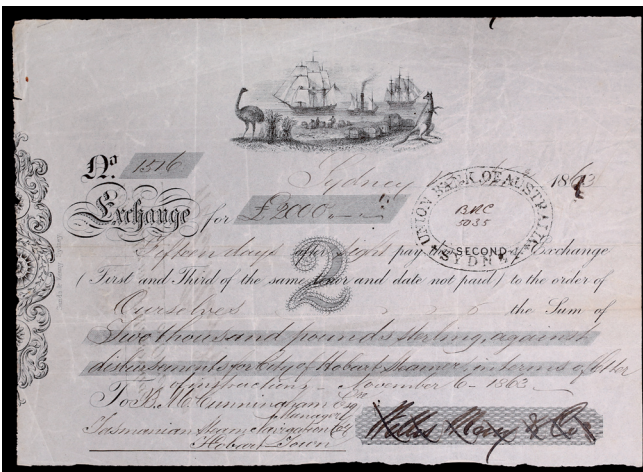 No. 1516
Sydney 1863
Exchange for £2000
UNION BANK OF AUSTRALIA
SYDNEY
BRC
5035
2
Fifteen days after sight pay this SECOND of Exchange
(First and Third of the same tenor and date not paid) to the order of
Ourselves the Sum of
Two thousand pounds sterling, against
disbursements for City of Hobart Steamer, in terms of letter
of instructions - November 6 - 1863
To B. M. Cunningham Esqre
Manager
Tasmanian Steam Navigation Co
Hobart Town
& Co